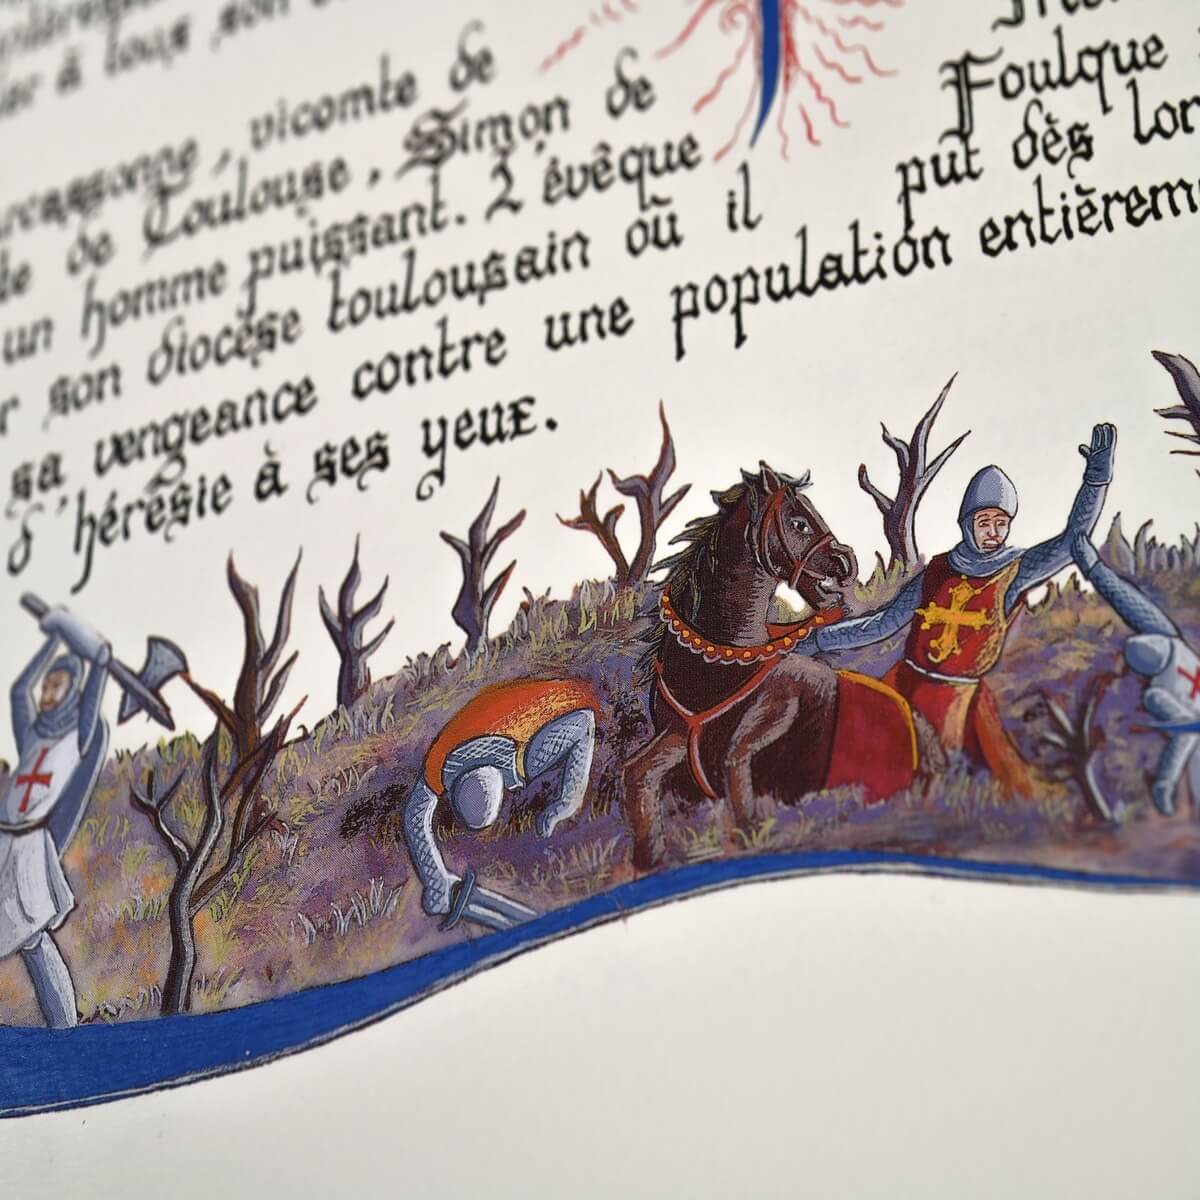 à tous son
vicomte de
de Toulouse, Simon de
un homme puissant. L'évêque
son diocèse toulousain où il
sa vengeance contre une population entièrem
d'hérésie à ses yeux.
Foulque
put dès lor